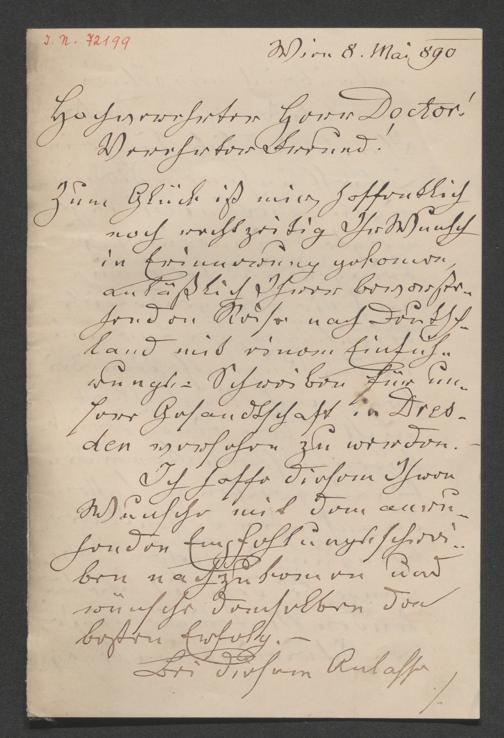 J. N. 72199
Wien 8. Mai 890
Hochverehrter Herr Doctor!
Verehrter Freund!
Zum Glück ist mir, hoffentlich
noch rechtzeitig Ihr Wunsch
in Erinnerung gekomen,
anläßlich Ihrer bevorste-
henden Reise nach Deutsch-
land mit einem Einfüh-
rungs-Schreiben für un-
sere Gesandtschaft in Dres-
den versehen zu werden.
Ich hoffe diesem Ihren
Wunsche mit dem anru-
henden Empfehlungsschrei-
ben nachzukomen und
wünsche demselben den
besten Erfolg.–
Bei diesem Anlasse
./.